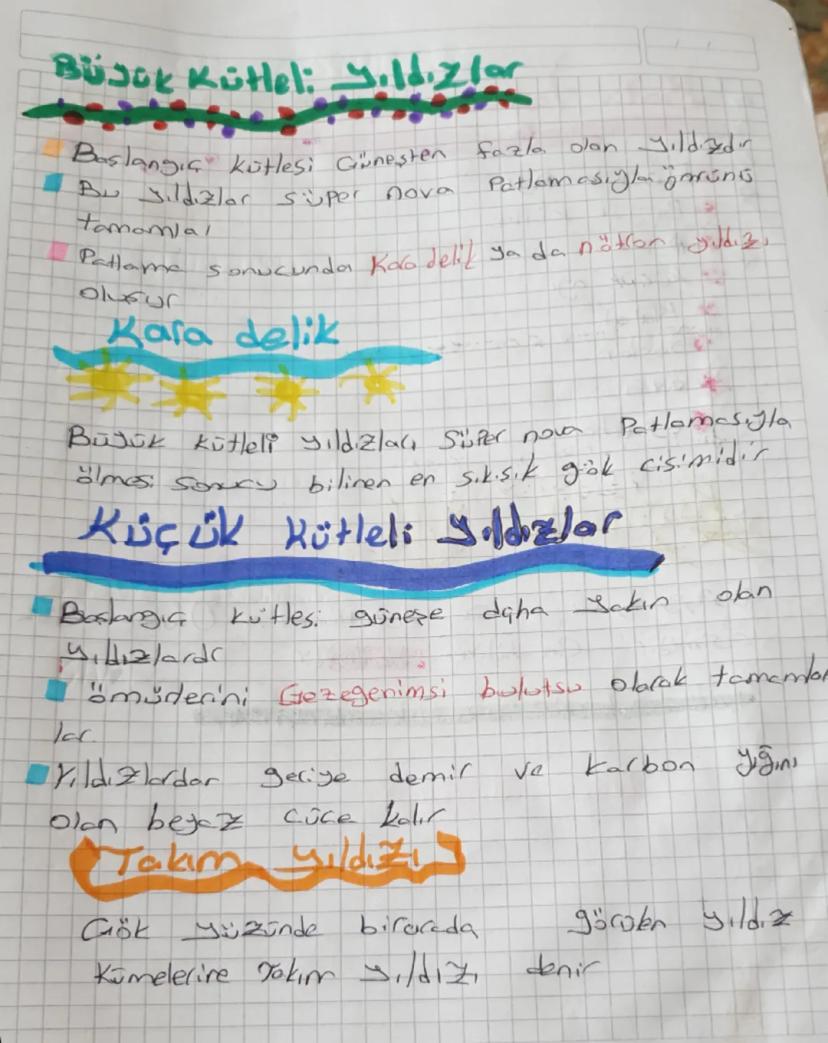 Büyük Kütleli Yıldızlar
Başlangıç kütlesi Güneşten fazla olan yıldızdır
Bu yıldızlar süper nova Patlamasıyla ömrünü
tamamlar
Patlama sonucunda Kara delik ya da nötron yıldızı
oluşur
Kara delik
Büyük kütleli yıldızları süper nova Patlamasıyla
ölmesi sonucu bilinen en sıkışık gök cisimidir
Küçük Kütleli Yıldızlar
Başlangıç kütlesi güneşe daha yakın olan
yıldızlardı
ömürlerini Gezegenimsi bulutsu olarak tamamlar
lar.
Yıldızlardan geriye demir ve karbon yığını
olan beyaz cüce kalır
Takım yıldızı
Gök yüzünde birarada görülen yıldız
kümelerine Takım yıldızı denir